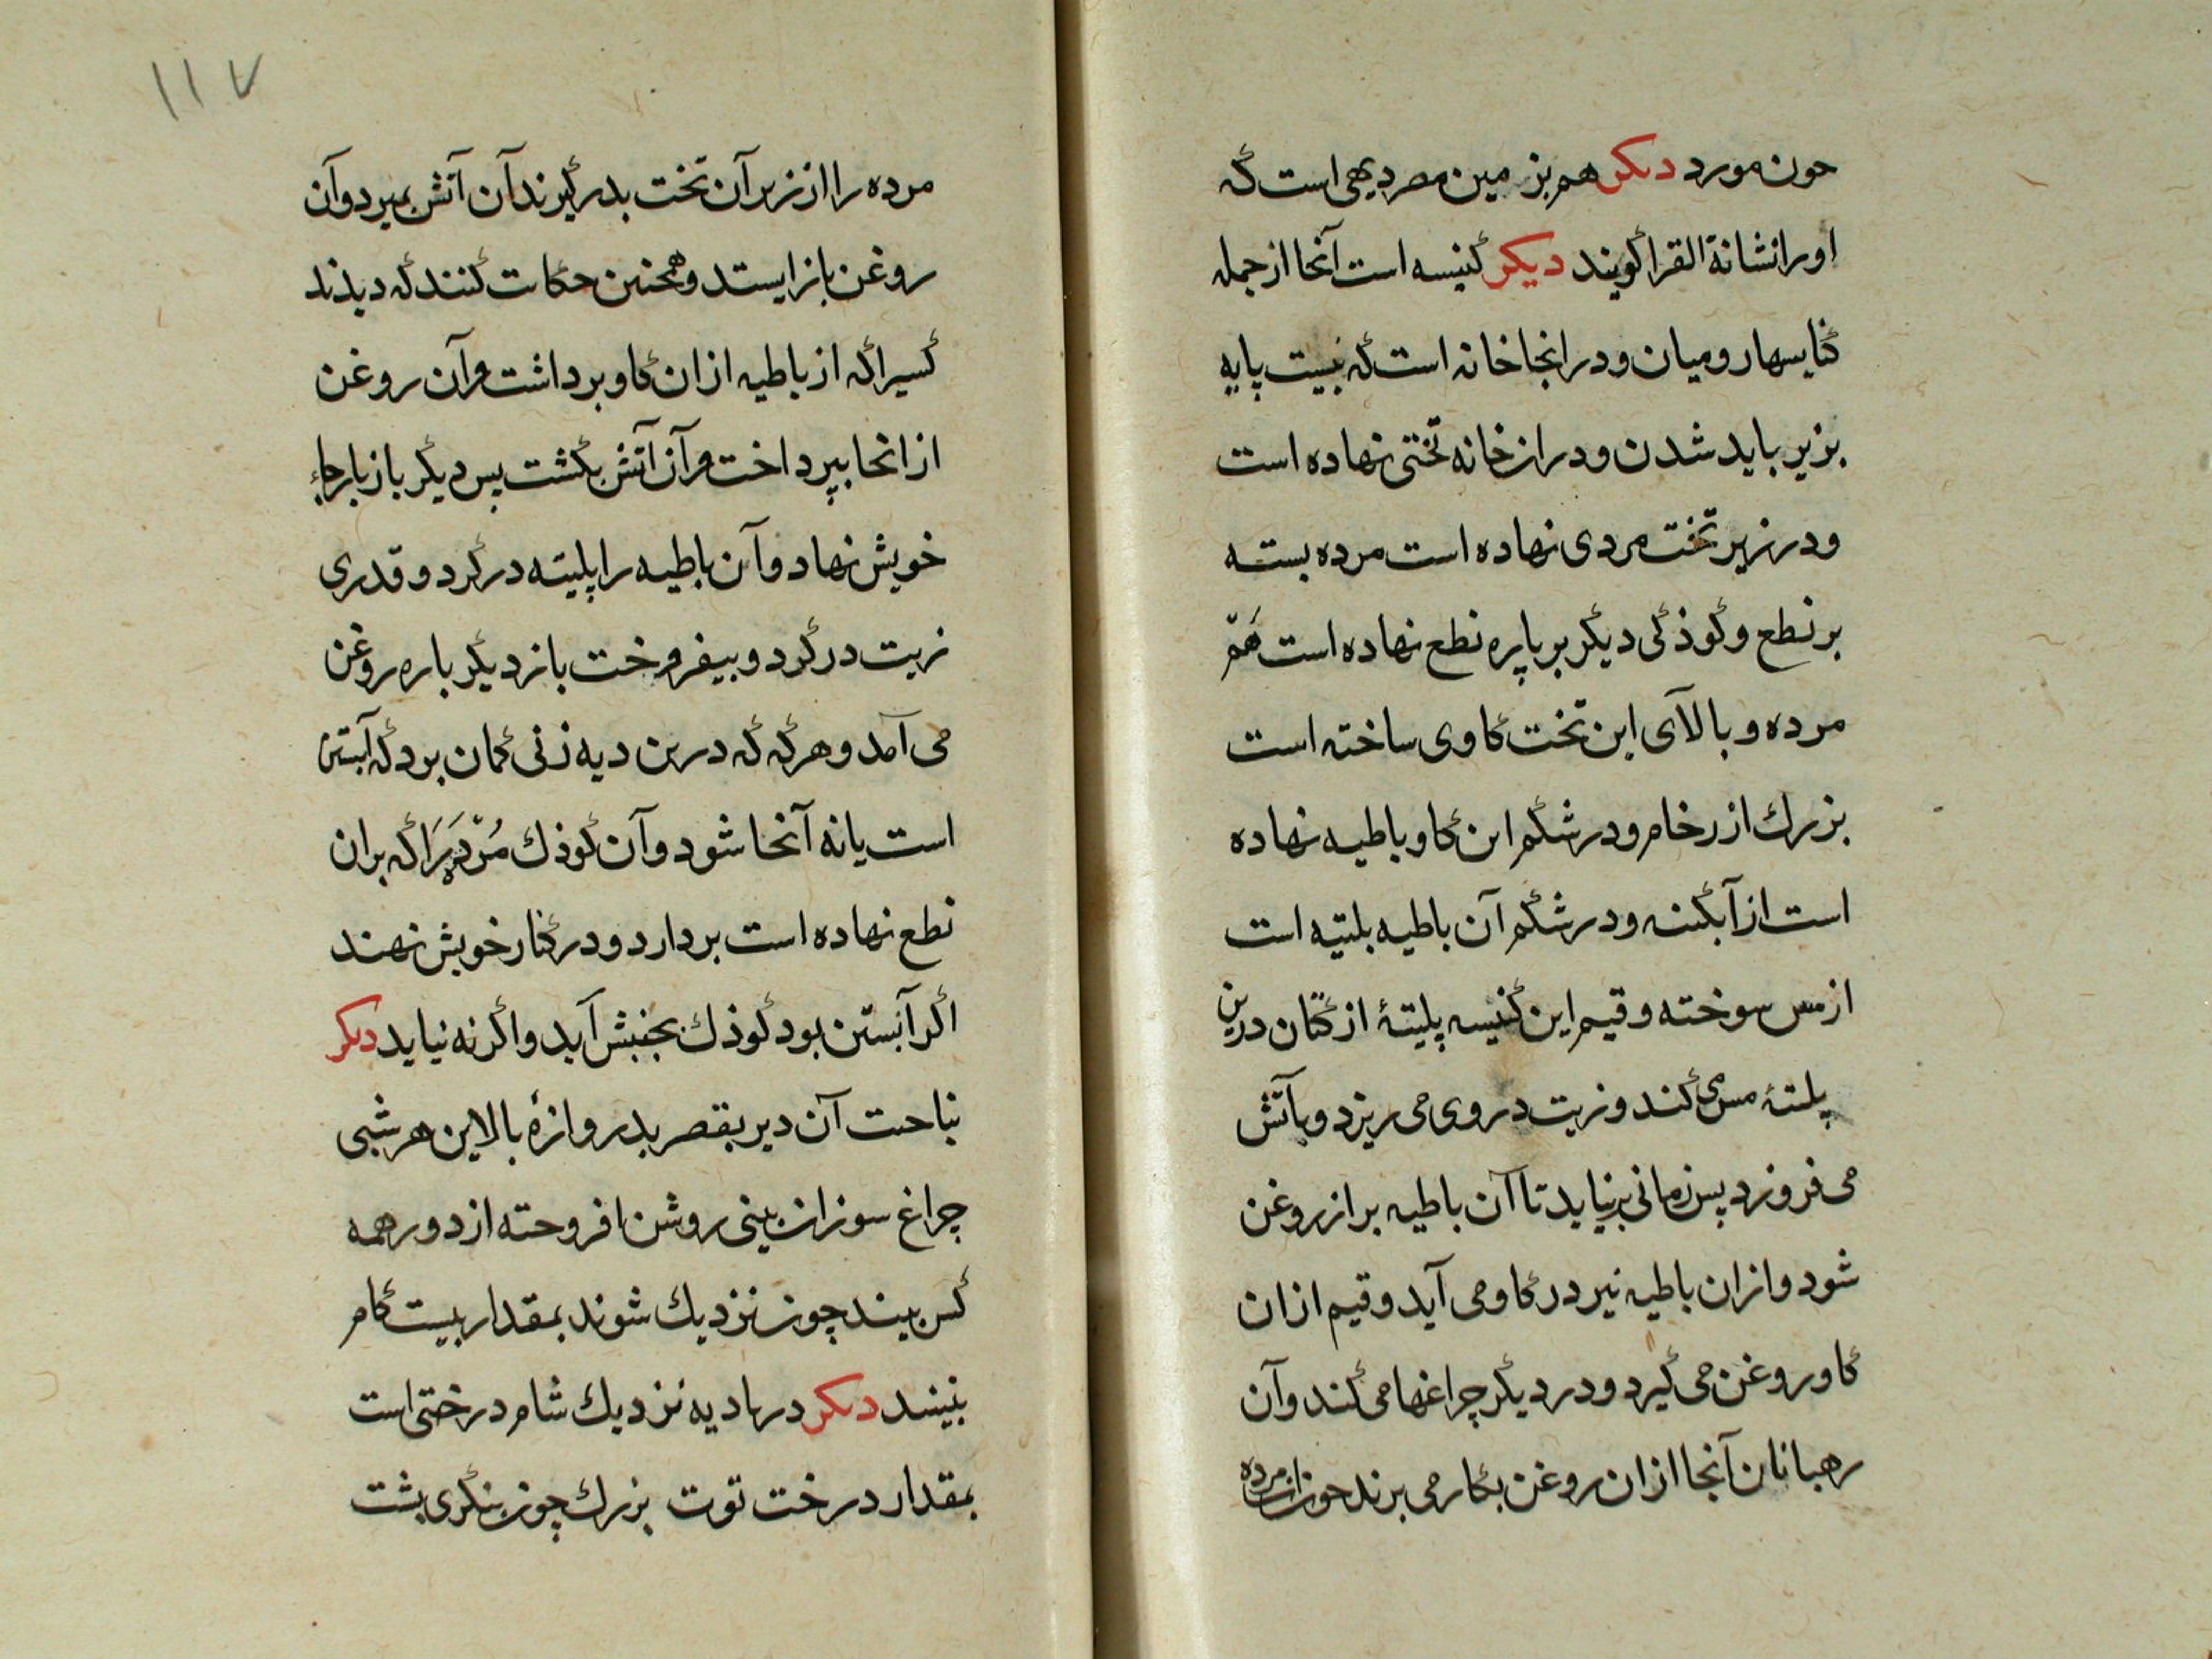 چون مورد دیگر هم بزمین مصر دیهی است که
اورا نشانة القرا کویند دیکر کنیسه است آنجا از جمله
کنایسهاء رومیان و در انجا خانه است که بیست پایه
بزیر باید شدن و در ان خانه تختی نهاده است
و در زیر تخت مردی نهاده است مرده بسته
بر نطع و کوذکی دیکر بر پاره نطع نهاده است هم
مرده و بالآی این تخت کاوی ساخته است
بزرك از رخام و در شکم این کاو باطیه نهاده
است از آبکینه و در شکم آن باطیه بلیته است
از مس سوخته و قیم این کنیسه پلیتهٔ از کتان درین
پلیتهٔ مس می کند و زیت در وی می ریزد و باتش
می فروزد پس زمانی برنیاید تا آن باطیه بر از روغن
شود و ازان باطیه نیر در کاو می آید و قیم ازان
کاو روغن می کیرد و در دیکر چراغها می کند و آن
رهبانان آنجا ازان روغن بکار می برند چون آن مرده
۱۱۷
مرده را از زیر آن تخت بدر کیرند آن آتش بمیرد و آن
روغن باز ایستد و همچنین حکایت کنند که دیذند
کسیرا که از باطیه ازان کاو برداشت و آن روغن
از انجا بپرداخت و آن آتش بکشت پس دیکر باز بار جاء
خویش نهاد و آن باطیه را پلیته در کرد و قدری
زیت در کرد و بیفروخت باز دیکر باره روغن
می آمد و هرکه که درین دیه زنی کمان برد که آبستن
است یا نه آنجا شود و آن کوذك مرده را که بران
نطع نهاده است بردارد و در کنار خویش نهند
اکر آبستن بود کوذك بجنبش آید و اکر نه نیاید دیکر
بناحیت آن دیر بقصر بدروازهٔ بالاین هر شبی
چراغ سوزان بینی روشن افروخته از دور همه
کس بیند چون نزدیك شوند بمقدار بیست کام
نبینند دیکر در بادیه نزدیك شام درختی است
بمقدار درخت توت بزرك چون بنکری بشت